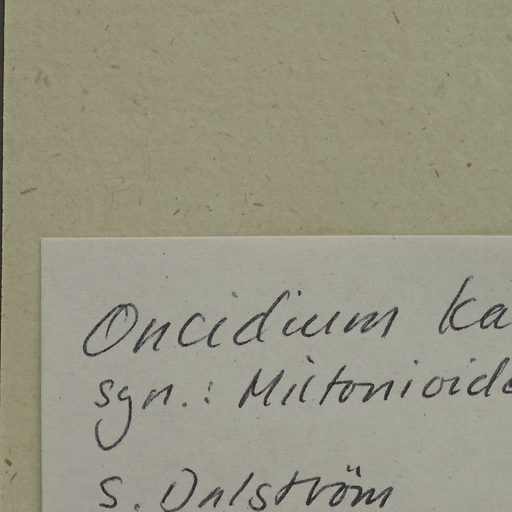 Oncidium ka
syn.: Miltonioide
S. Dalström